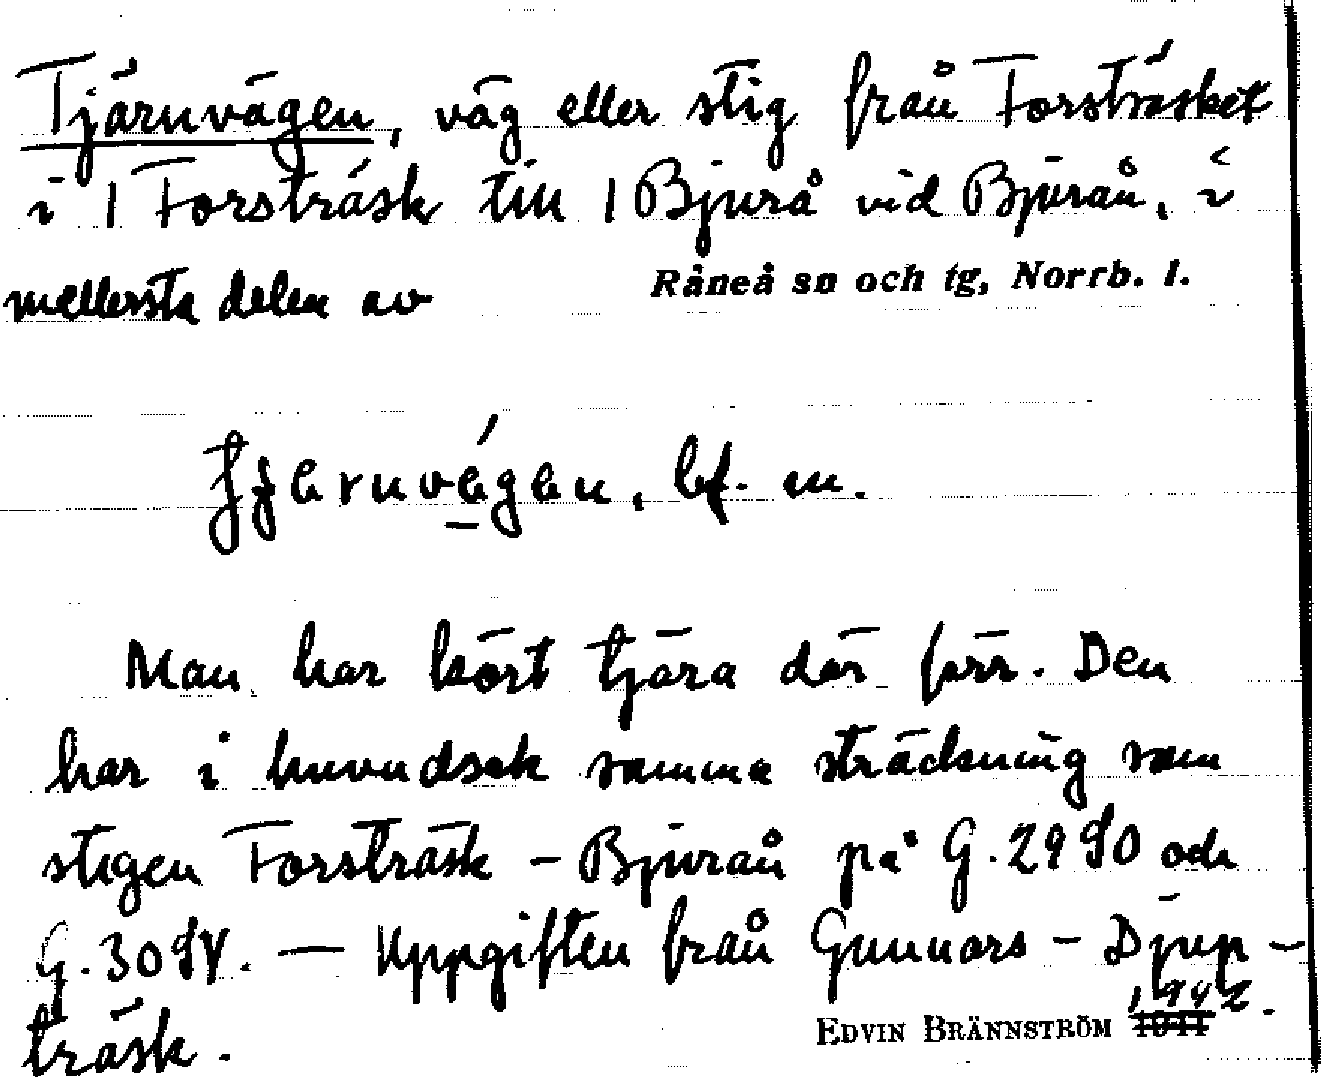 Tjärnvägen, väg eller stig från Forsträsket
i 1 Forsträsk till 1 Bjurå vid Bjurån, i
mellersta delen av Råneå sn och tg, Norrb. l.
bf. m.
Man har kört tjära där förr. Den
har i huvudsak samma sträckning som
stigen Forsträsk – Bjurån på G. 2990 och
G. 3094. — Uppgiften från Gunnars – Djup-
träsk.
EDVIN BRÄNNSTRÖM 1941 1942.